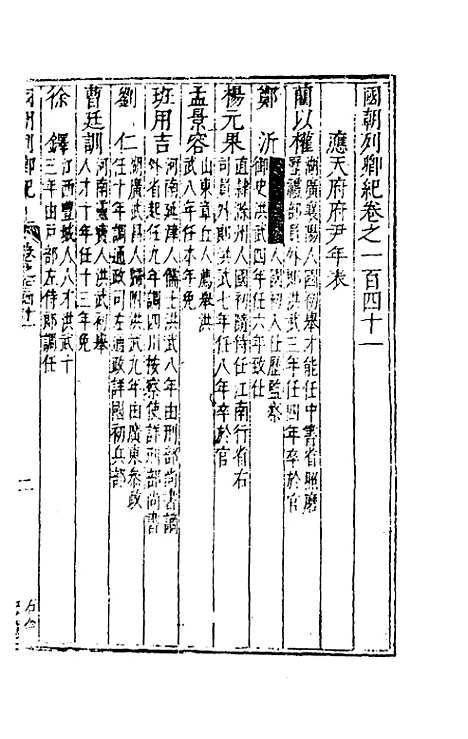 國朝列卿紀卷之一百四十一
應天府府尹年表
蘭以權
湖廣襄陽人國初舉才能任中書省照磨
歷禮部員外郎洪武三年任四年卒於官
鄭沂
人國初入仕歷監察
御史洪武四年任六年致仕
楊元杲
直隸滁州人國初隨侍任江南行省右
司員外郎洪武七年任八年卒於官
孟景容
山東章丘人薦舉洪
武八年任本年免
班用吉
河南延津人儒士洪武八年由刑部尚書謫
外省起任九年調四川按察使詳刑部尚書
劉仁
湖廣武昌人國初歸附洪武九年由廣東參政
任十年調通政司左通政詳國初兵部
曹廷訓
河南靈寶人洪武初舉
人才十年任十三年免
徐鐸
江西豐城人人才洪武十
三年由戶部左侍郎調任
國朝列卿紀